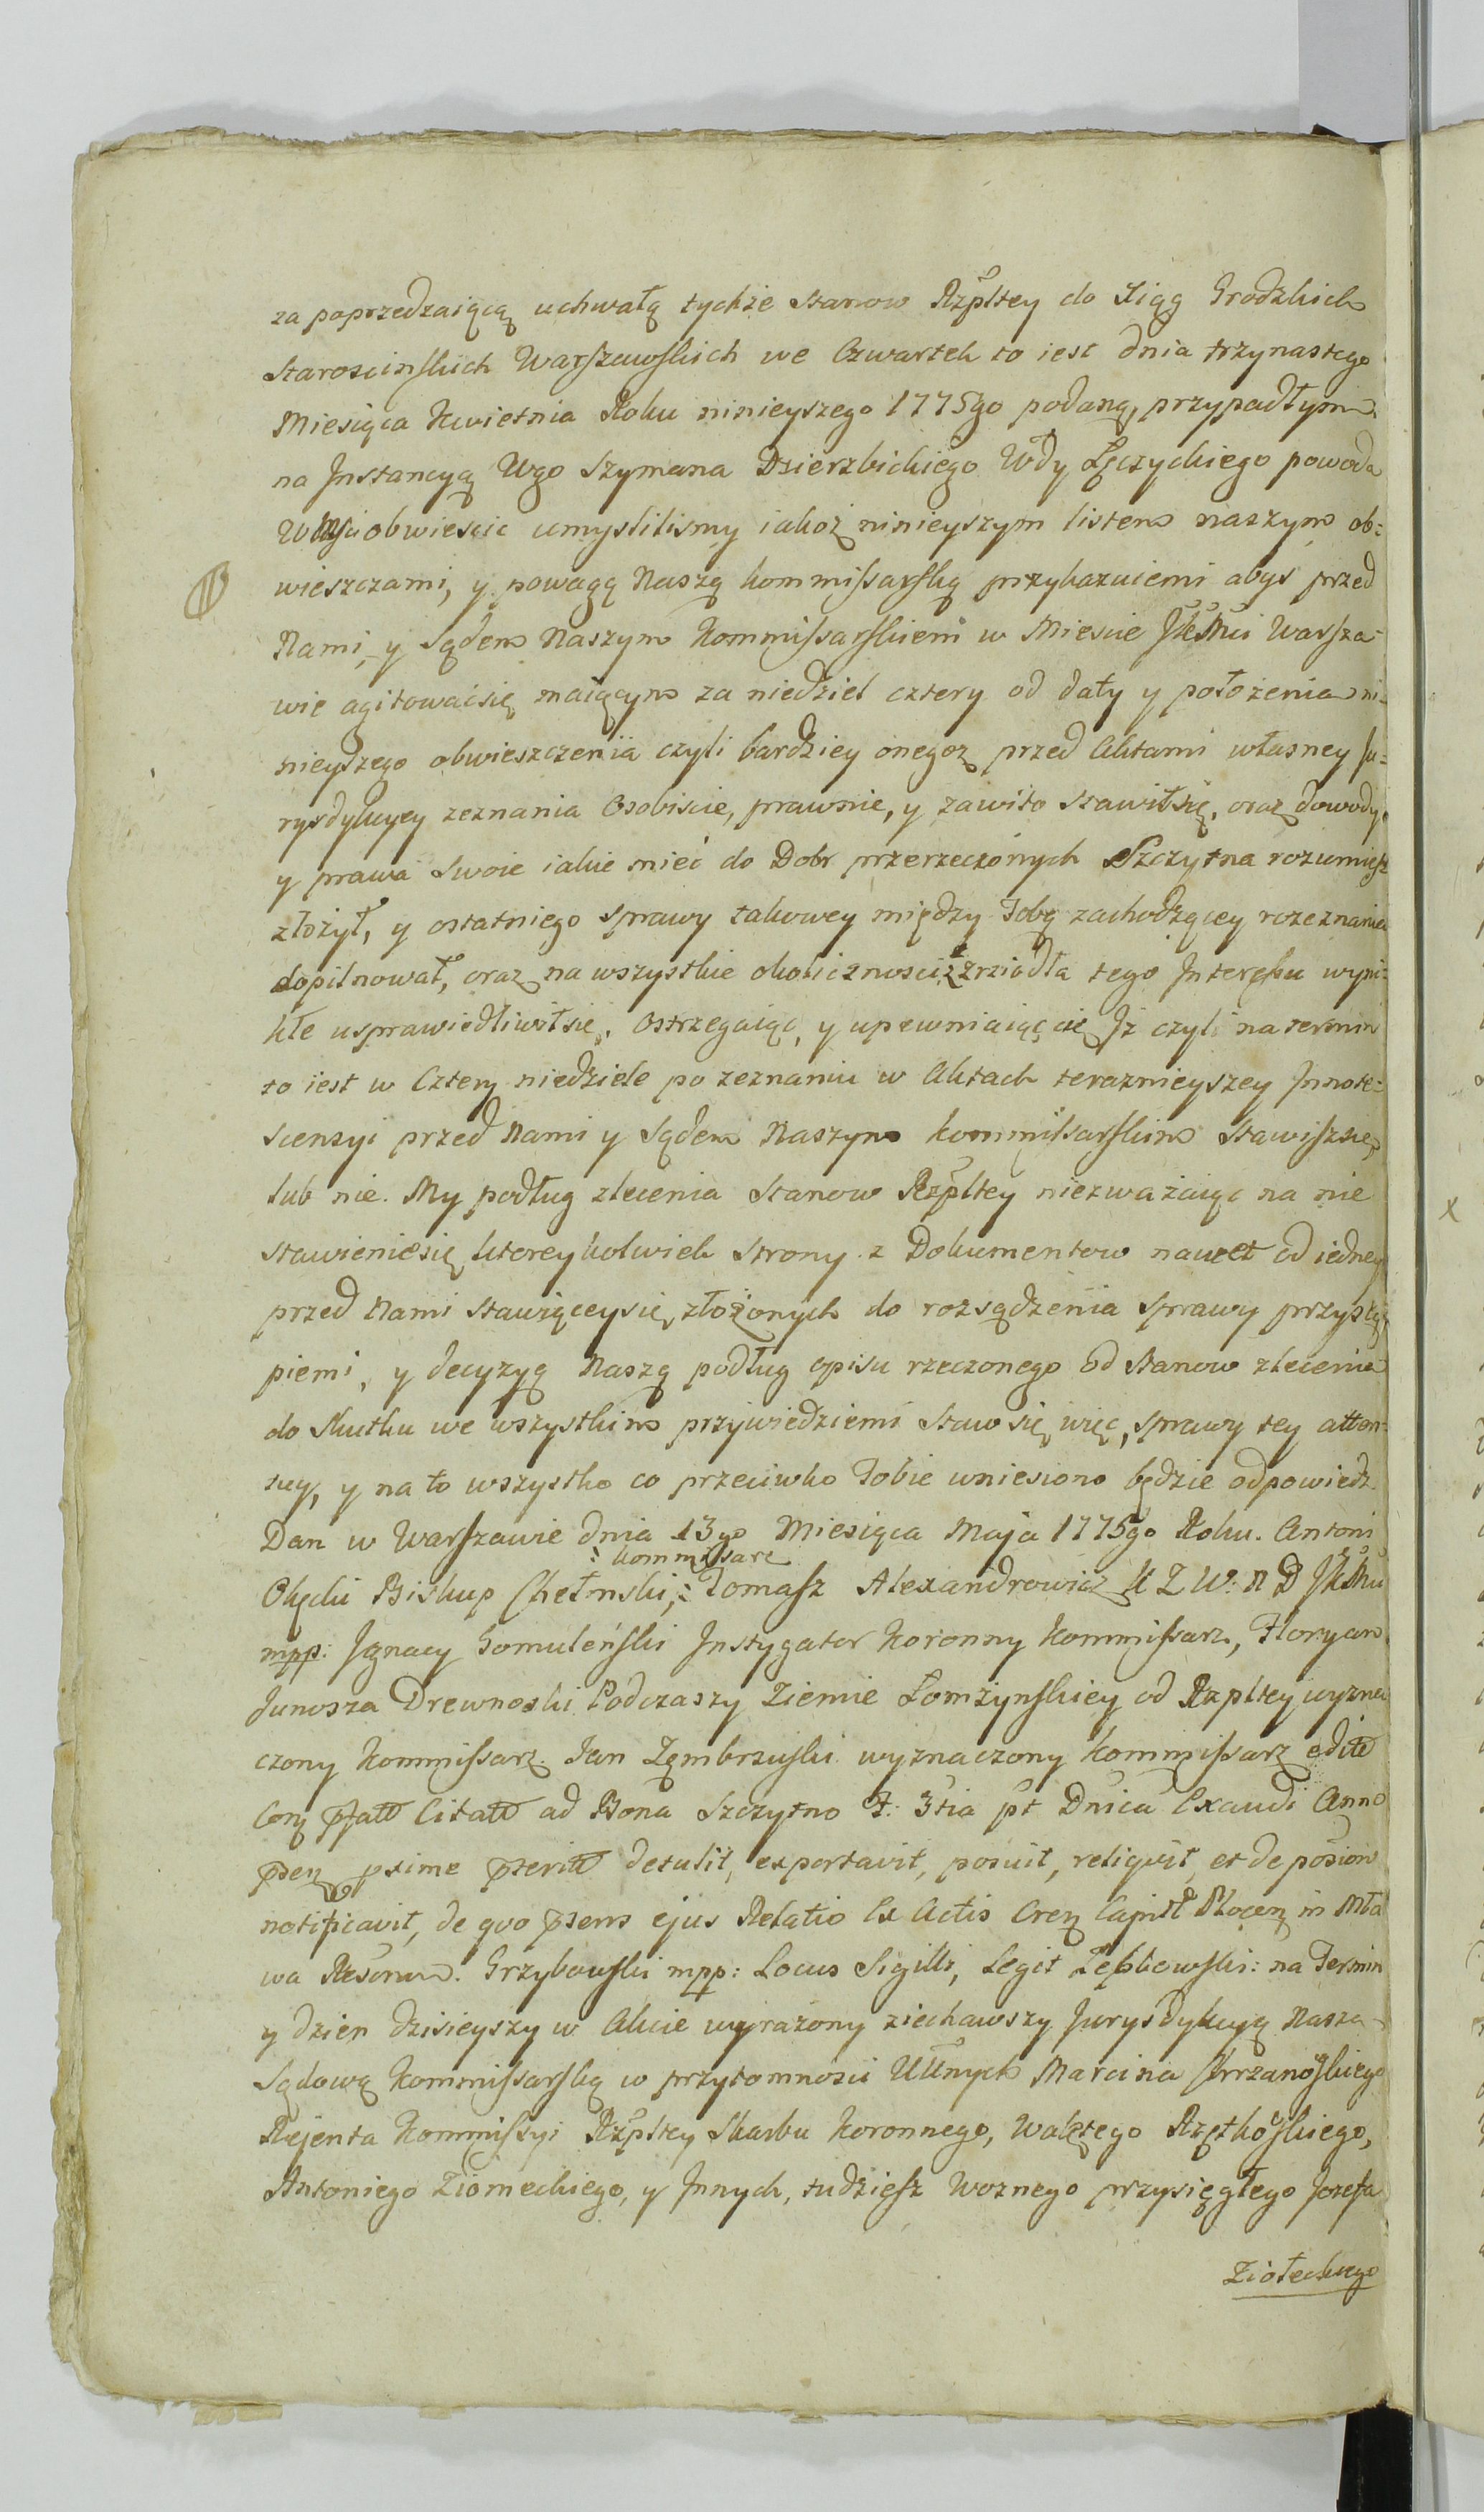 za poprzedzaiącą uchwałą tychże Stanow Rzpltey do Xiąg Grodzkich
Staroscinskich Warszawskich we Czwartek to iest dnia trzynastego
Miesiąca Kwietnia Roku ninieyszego 1775go podaną, przypadłym
na Instancyą Wgo Szymana Dzierzbickiego Wdy Łęczyckiego powoda
obwiescic umyslilismy iakoż ninieyszym listem naszym ob=
wieszczami, y powagą Naszą Kommissarską przykazuiemi abys przed
Nami, y Sądem Naszym Kommissarskiem w Miescie JKMci Warsza-
wie agitowaćsię maiącym za niedziel cztery od daty y położenia ni-
nieyszego obwieszczenia czyli bardziey onegoż przed Aktami własney Ju=
rysdykcyey zeznania Osobiscie, prawnie, y zawito stawiłsię, oraz dowody,
y prawa Swoie iakie mieć do Dobr przerzeczonych Szczytna rozumiesz
złożył, y ostatniego sprawy takowey między Tobą zachodzącey rozeznania
dopilnował, oraz na wszystkie okolicznosci z zrzodła tego Interessu wyni=
kłe usprawiedliwiłsię. Ostrzegaiąc, y upewniaiąc cię Iż czyli na termin
to iest w Cztery niedziele po zeznaniu w Aktach teraznieyszey Innote=
scensyi przed Nami y Sądem Naszym Kommissarskim Stawiszsię,
lub nie. My podług zlecenia Stanow Rzpltey niezważaiąc na nie
stawieniesię ktoreykolwiek Strony z Dokumentow nawet od iedney
przed Nami stawiąceysię złożonych do rozsądzenia Sprawy przystą
piemi, y decyzyą Naszą podług opisu rzeczonego od Stanow zlecenia
do Skutku we wszystkim przywiedziemi Staw się więc, sprawy tey atten=
tuy, y na to wszystko co przeciwko Tobie wniesiono będzie odpowiedz.
Dan w Warszawie dnia 13go Miesiąca Maja 1775go Roku. Antoni
: Kommissarz
Okęcki Biskup Chełmski,: Tomasz Alexandrowicz K Z W: N D JKMci
mpp: Ignacy Gomuleński Instygator Koronny Kommissarz, Floryan
Junosza Drewnoski Podczaszy Ziemie Łomżynskiey od Rzpltey wyzna
czony Kommissarz. Jan Zembrzuski wyznaczony Kommissarz edit
Citatt ad Bona Szczytno F: 3tia pt Dnica Exaudi Anno
pxime detulit, exportavit, posuit, reliqvit, et de posion
notificavit, de qvo ejus Relatio Ex Actis Płocen in Mła
wa . Grzybowski mpp: Locus Sigilli, Legit : na Termin
y dzien dzisieyszy w Akcie wyrażony ziechawszy Jurysdykcyą Nasza
Sądową Kommissarską w przytomnosci Marcina Skrzanoskiego
Rejenta Kommissyi Rzpltey Skarbu Koronnego, Walętego Rzętkoskiego,
Antoniego Ziomeckiego, y Innych, tudziesz Woznego przysięgłego Jozefa
Ziołeckiego